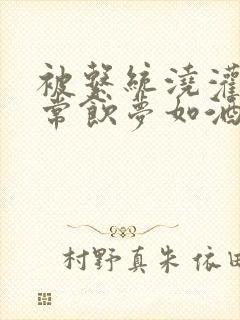 被系統澆灌
常飲夢如酒
村野真朱 依田